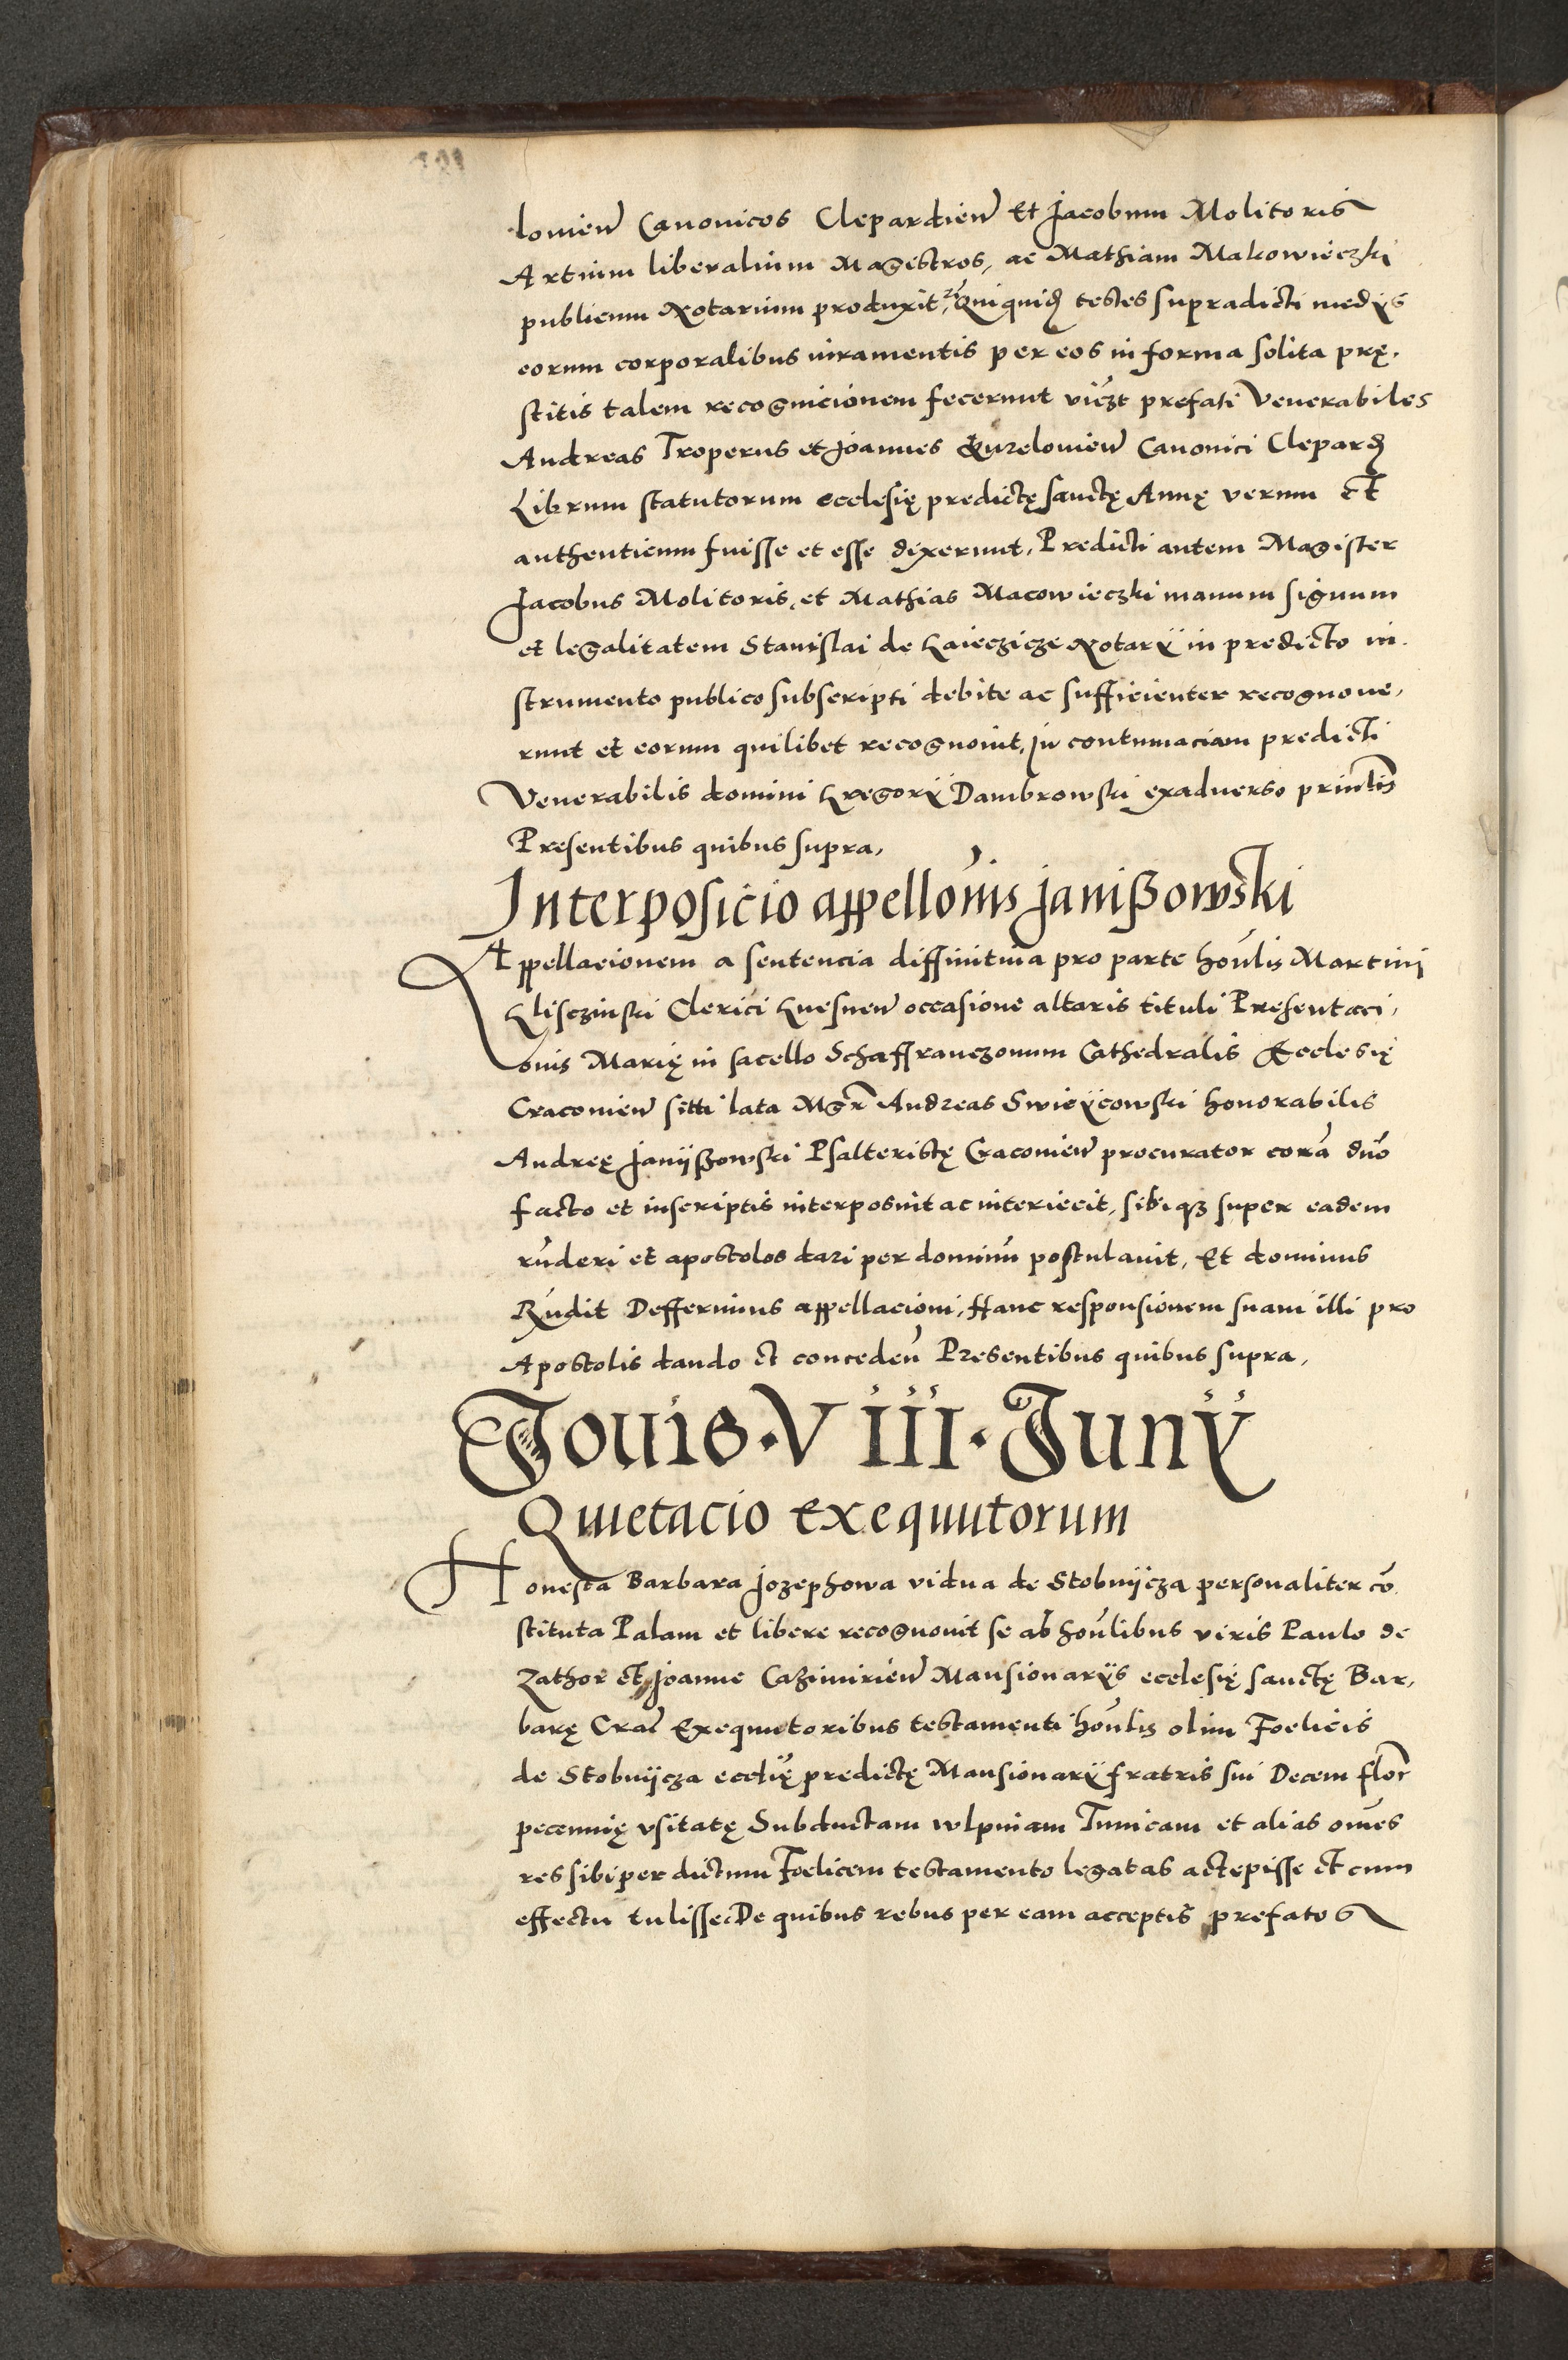 loviēn Canonicos Clepardiēn Et Jacobum Molitoris
Artium liberalium Magistros, ac Mathiam Makowieczki
publicum Notarium produxit, Quiquid testes supradicti medys
eorum corporalibus iuramentis per eos in forma solita prę.
stitis talem recognicionem fecerunt viczt prefati Venerabiles
Andreas Troperus et Joannes Kurzeloviēn Canonici Clepard
Librum statutorum ecclesię predictę sanctę Annę verum et
authenticum fuisse et esse dixerunt, Predicti autem Magister
Jacobus Molitoris, et Mathias Macowieczki manum signum
et legalitatem Stanislai de Gaieczicze Notarÿ in predicto in.
strumento publico subscripti debite ac sufficienter recognove,
runt et eorum quilibet recognovit, In contumaciam predicti
Venerabilis domini Gregorÿ Dambrowski exadverso prinlis
Presentibus quibus supra,
Interposicio appellonis Janißowski
Appellacionem a sentencia diffinitiva pro parte honlis Martini
Glisczinski Clerici Gnesnēn occasione altaris tituli Presentaci,
onis Marię in sacello Schaffranczonum Cathedralis Ecclesię
Cracoviēn sitti lata Mgr Andreas Swieÿcowski honorabilis
Andreę Janijßowski Psalteristę Cracoviēn procurator corā dno
facto et inscriptis interposuit ac interiecit, sibiqz super eadem
rnderi et apostolos dari per dominū postulavit, Et dominus
Rndit Defferimus appellacioni, Hanc responsionem suam illi pro
Apostolis dando et conceden Presentibus quibus supra,
Jouis · VIII · Junÿ
Quietacio exequutorum
Honesta Barbara Jozephowa vidua de Stobnijcza personaliter cō.
stituta Palam et libere recognovit se ab honlibus viris Paulo de
Zathor et Joanne Cazimiriēn Mansionarÿs ecclesię sanctę Bar,
barę Crac Exequutoribus testamenti honlis olim Foelicis
de Stobnijcza ecclię predictę Mansionarÿ fratris sui Decem flor
pecunnię vsitatę Subductam wlpinam Tunicam et alias omēs
res sibi per dictum Foelicem testamento legatas accepisse et cum
effectu tulisse, De quibus rebus per eam acceptis prefatos